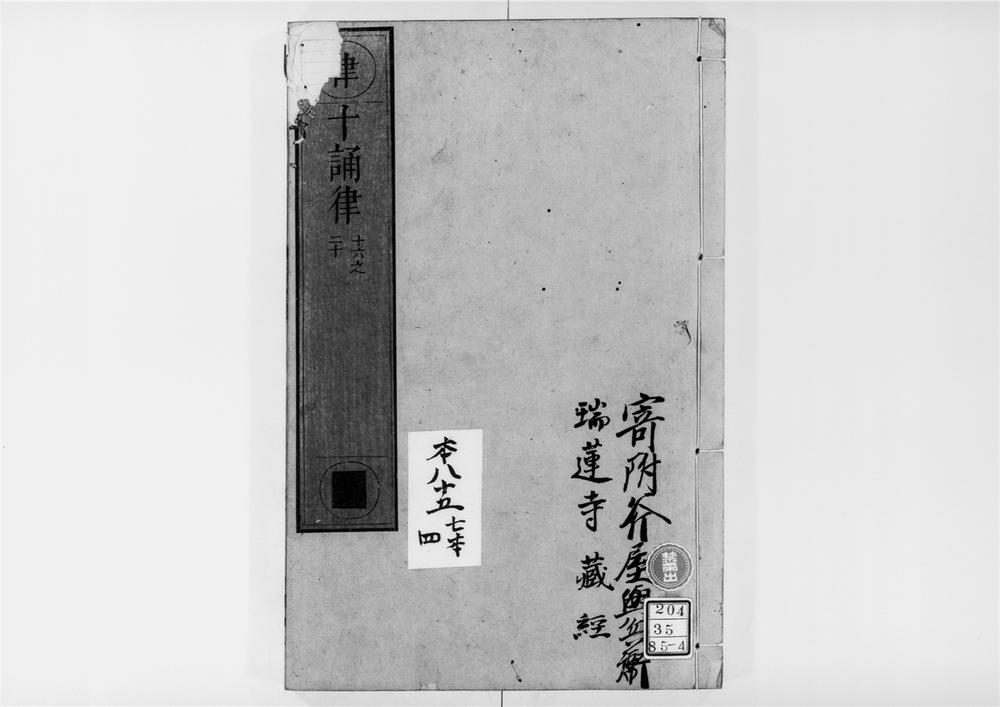 律
十誦律
十六之
二十
本八十五
七本
四
寄附斧屋與兵衞
瑞蓮寺藏經
禁帶出
204
35
85-4